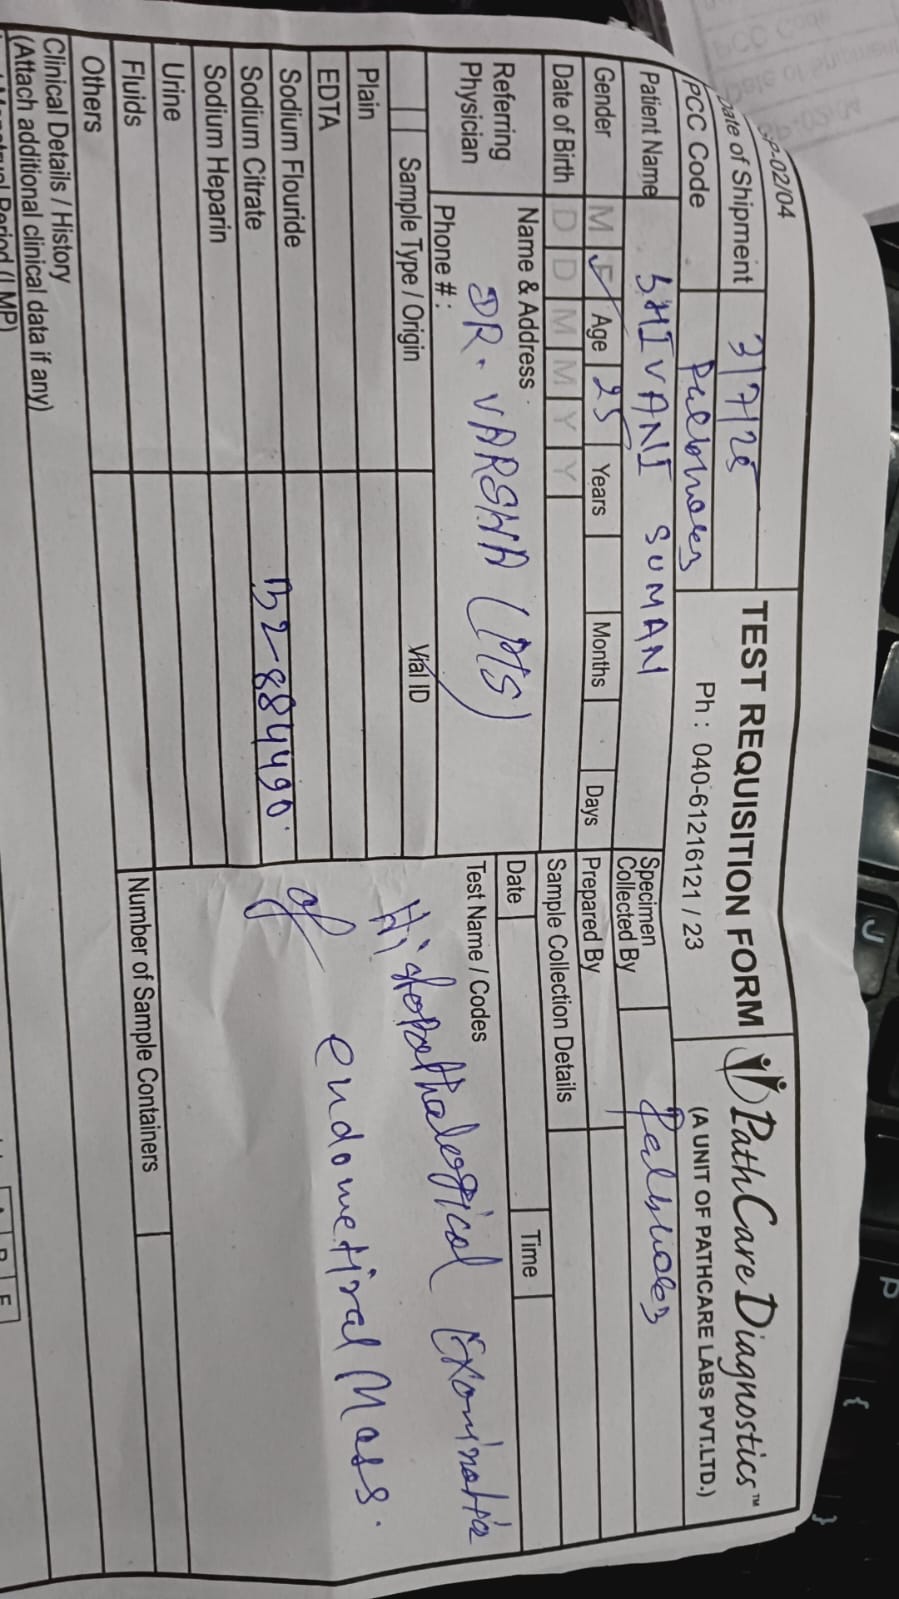 GP-02/04
Date of Shipment 3/7/25
TEST REQUISITION FORM
PathCare Diagnostics™
PCC Code
Ph : 040-61216121 / 23
(A UNIT OF PATHCARE LABS PVT.LTD.)
Patient Name SHIVANI SUMAN
Specimen Collected By
Gender M F ✓ Age 25 Years Months Days
Prepared By
Date of Birth D D M M Y Y
Sample Collection Details
Date Time
Referring Physician
Name & Address
DR. VARSHA (PTS)
Phone # :
Test Name / Codes
Histopathological Examination
of endometiral Mass.
Sample Type / Origin Vial ID
Plain
EDTA
Sodium Flouride
Sodium Citrate B2-884490
Sodium Heparin
Urine
Fluids
Number of Sample Containers
Others
Clinical Details / History
(Attach additional clinical data if any)
Period (LMP)